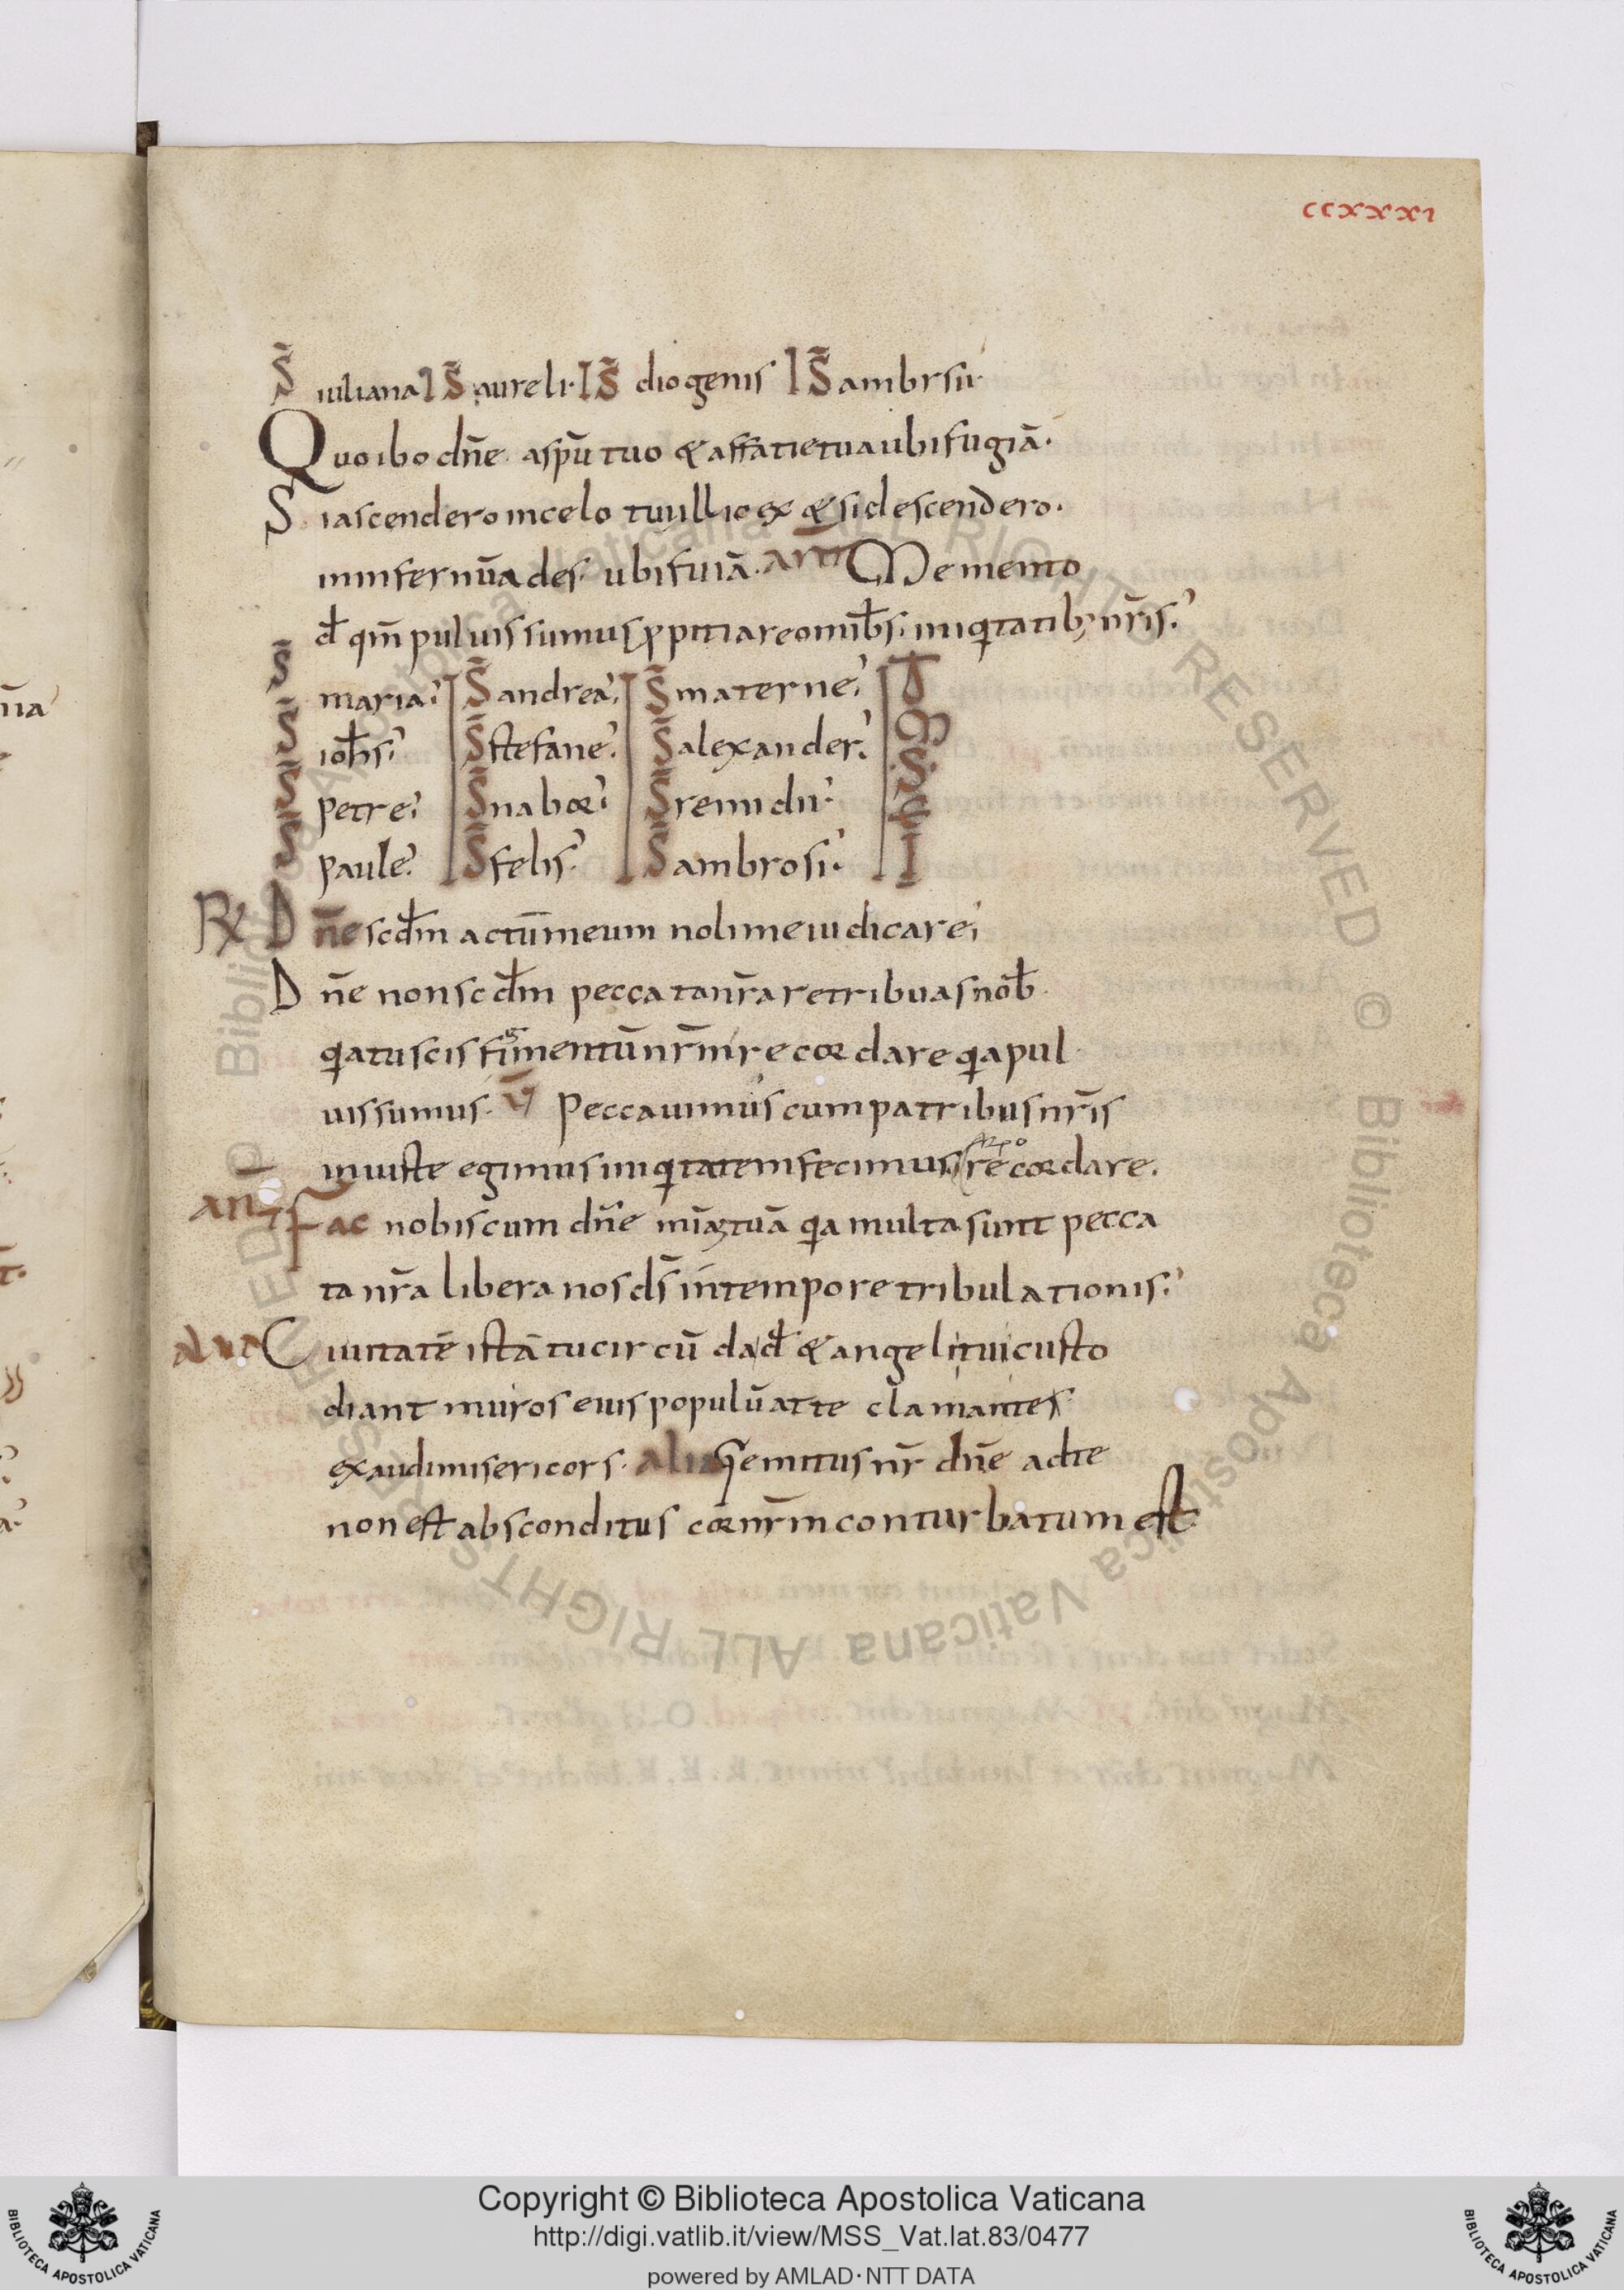 ccxxxi
S̄ iuliana S̄ aureli· S̄ diogenis S̄ ambrsii·
Quo ibo dn̄e a sp̄u tuo & a ffatie tua ubi fugiā·
Si ascendero in celo tu illic ex & si descendero·
in infernū ades· ubi fuiā· Memento
qm̄ pulvis sumus iniqitatib; nr̄is·
S̄ maria· S̄ andrea· S̄ materne·
S̄ S̄ stefane· S̄ alexander·
S̄ petre· S̄ nabor· S̄
S̄ paule· S̄ felis· S̄ ambrosi·
R Dn̄e actū meum noli me iudicare·
Dn̄e non peccata nr̄a retribuas
qia tu scis recordare qia pul
vis sumus· Peccavimus cum patribus nr̄is
iniuste egimus iniqitatem fecimus recordare·
Fac nobiscum dn̄e tuā qia multa sunt pecca
ta nr̄a libera nos ds̄ in tempore tribulationis·
Civitatē istā tu circū da & angeli tui custo
diant muros eius populū at te clamantes·
exaudi misericors· alia Gemitus nr̄ dn̄e ad te
non est absconditus cor nr̄m conturbatum est·
Copyright © Biblioteca Apostolica Vaticana
http://digi.vatlib.it/view/MSS_Vat.lat.83/0477
powered by AMLAD·NTT DATA
BIBLIOTECA APOSTOLICA VATICANA
BIBLIOTECA APOSTOLICA VATICANA
Biblioteca Apostolica Vaticana ALL RIGHTS RESERVED © Biblioteca Apostolica Vaticana ALL RIGHTS RESERVED ©